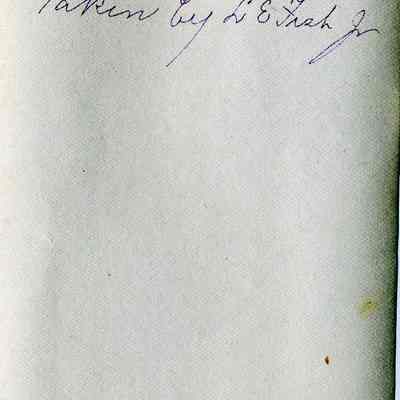 Taken by L E Fish Jr